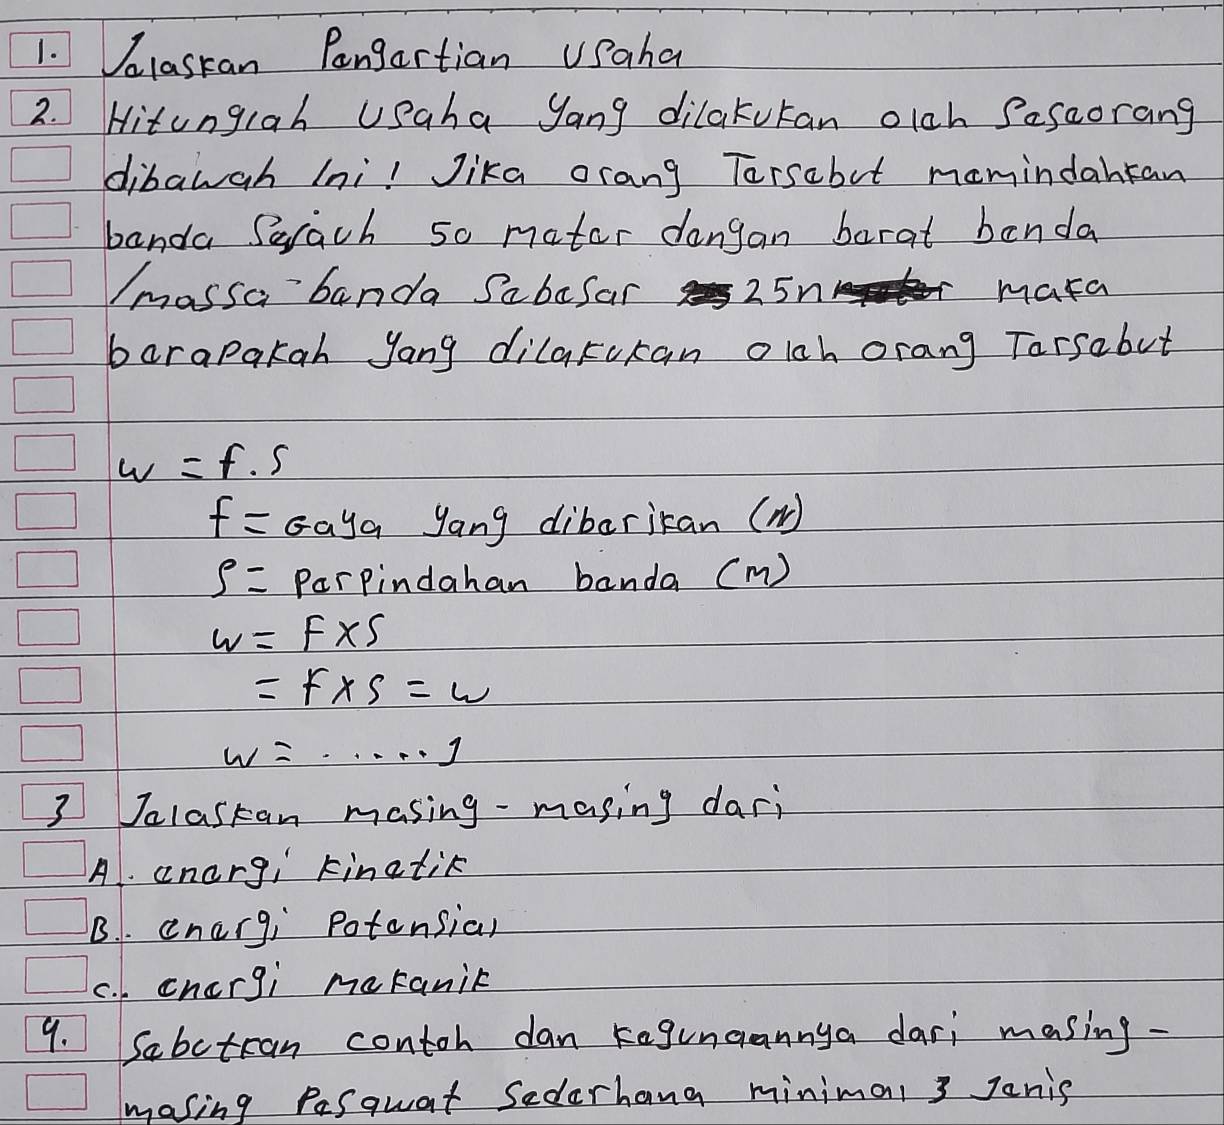 1. Jelaskan Pengertian usaha
2. Hitunglah usaha yang dilakukan oleh seseorang
dibawah ini! Jika orang Tersebut memindahkan
benda sejauh 50 meter dengan berat benda
/massa benda sebesar 25n maka
berapakah yang dilakukan oleh orang Tersebut
w = f.s
f = Gaya yang diberikan (N)
s = perpindahan benda (m)
w = F x s
= F x s = w
w = ..... J
3 Jelaskan masing-masing dari
A. energi kinetik
B. energi Potensial
C. energi mekanik
4. Sebutkan contoh dan kegunaannya dari masing-
masing Pesawat sederhana minimal 3 Jenis